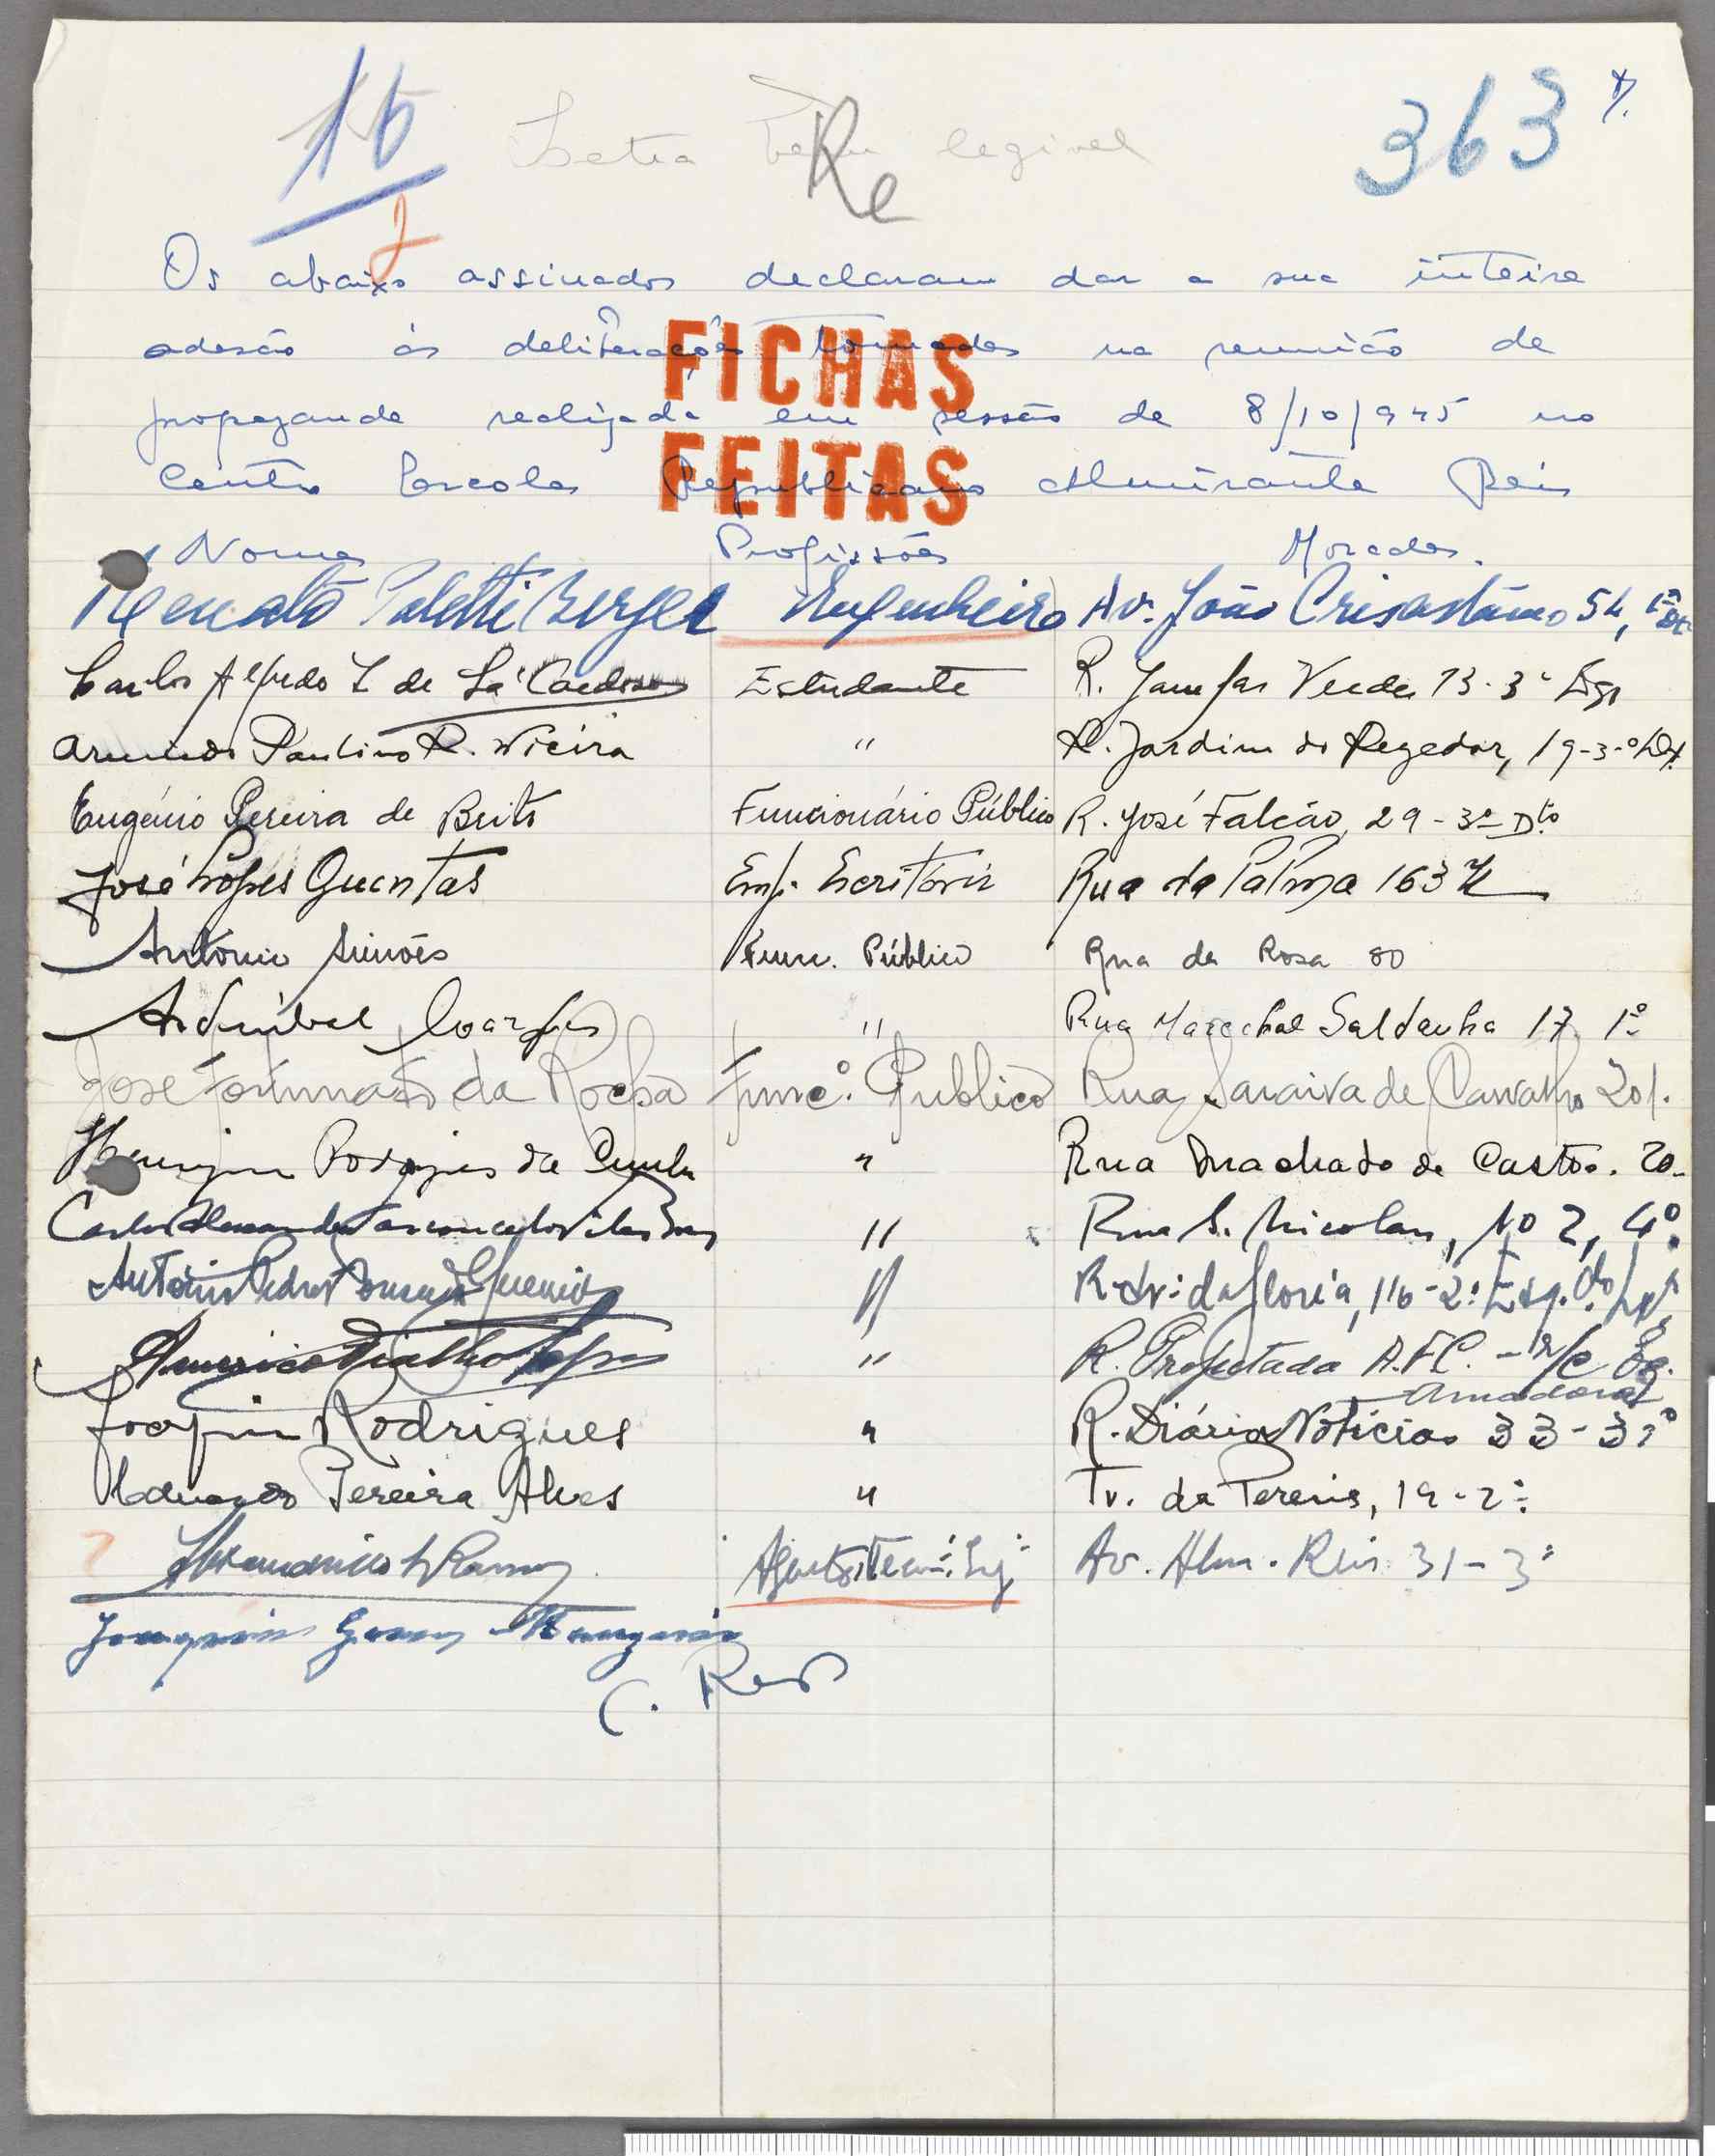 16
Letra bem legivel
Re
363
Os abaixo assinados declaram dar a sua inteira
adesão ás deliberações tomadas na reunião de
propaganda realizada em sessão de 8/10/945 no
Centro Escolar Republicano Almirante Reis
FICHAS
FEITAS
Nomes Profissões Moradas.
Renato Berger Engenheiro Av. João Crisostámo 54, 1º
Carlos Alfredo L de Sá Cardoso Estudante R. Janelas Verdes 13-3º Esq
Armindo Paulino R. Vieira " R. Jardim do Regedor, 19-3-º
Eugénio Pereira de Brito Funcionário Público R. José Falcão, 29-3º Dtº
José Lopes Quentas Emp. Escritório Rua da Palma 163
António Simões Func. Público Rua da Rosa 80
" Rua Marechal Saldanha 17, 1º
José Fortunato da Rocha Funcº. Publico Rua Saraiva de Carvalho 201.
Rodrigues da Cunha " Rua Machado de Castro. 20
Carlos " Rua S. Nicolau, Nº 2, 4º.
António Pedro " da Gloria, 116-2º Esq.
Americo " R. Projetada A.F.C. - r/c Eq.
Amadora
Joaquim Rodrigues " R. Diário Notícias 33-3º
Eduardo Pereira Alves " Tv. da Pereira, 19-2º
Ramos Av. Alm. Reis 31-3º
Joaquim Gomes
C. Reis